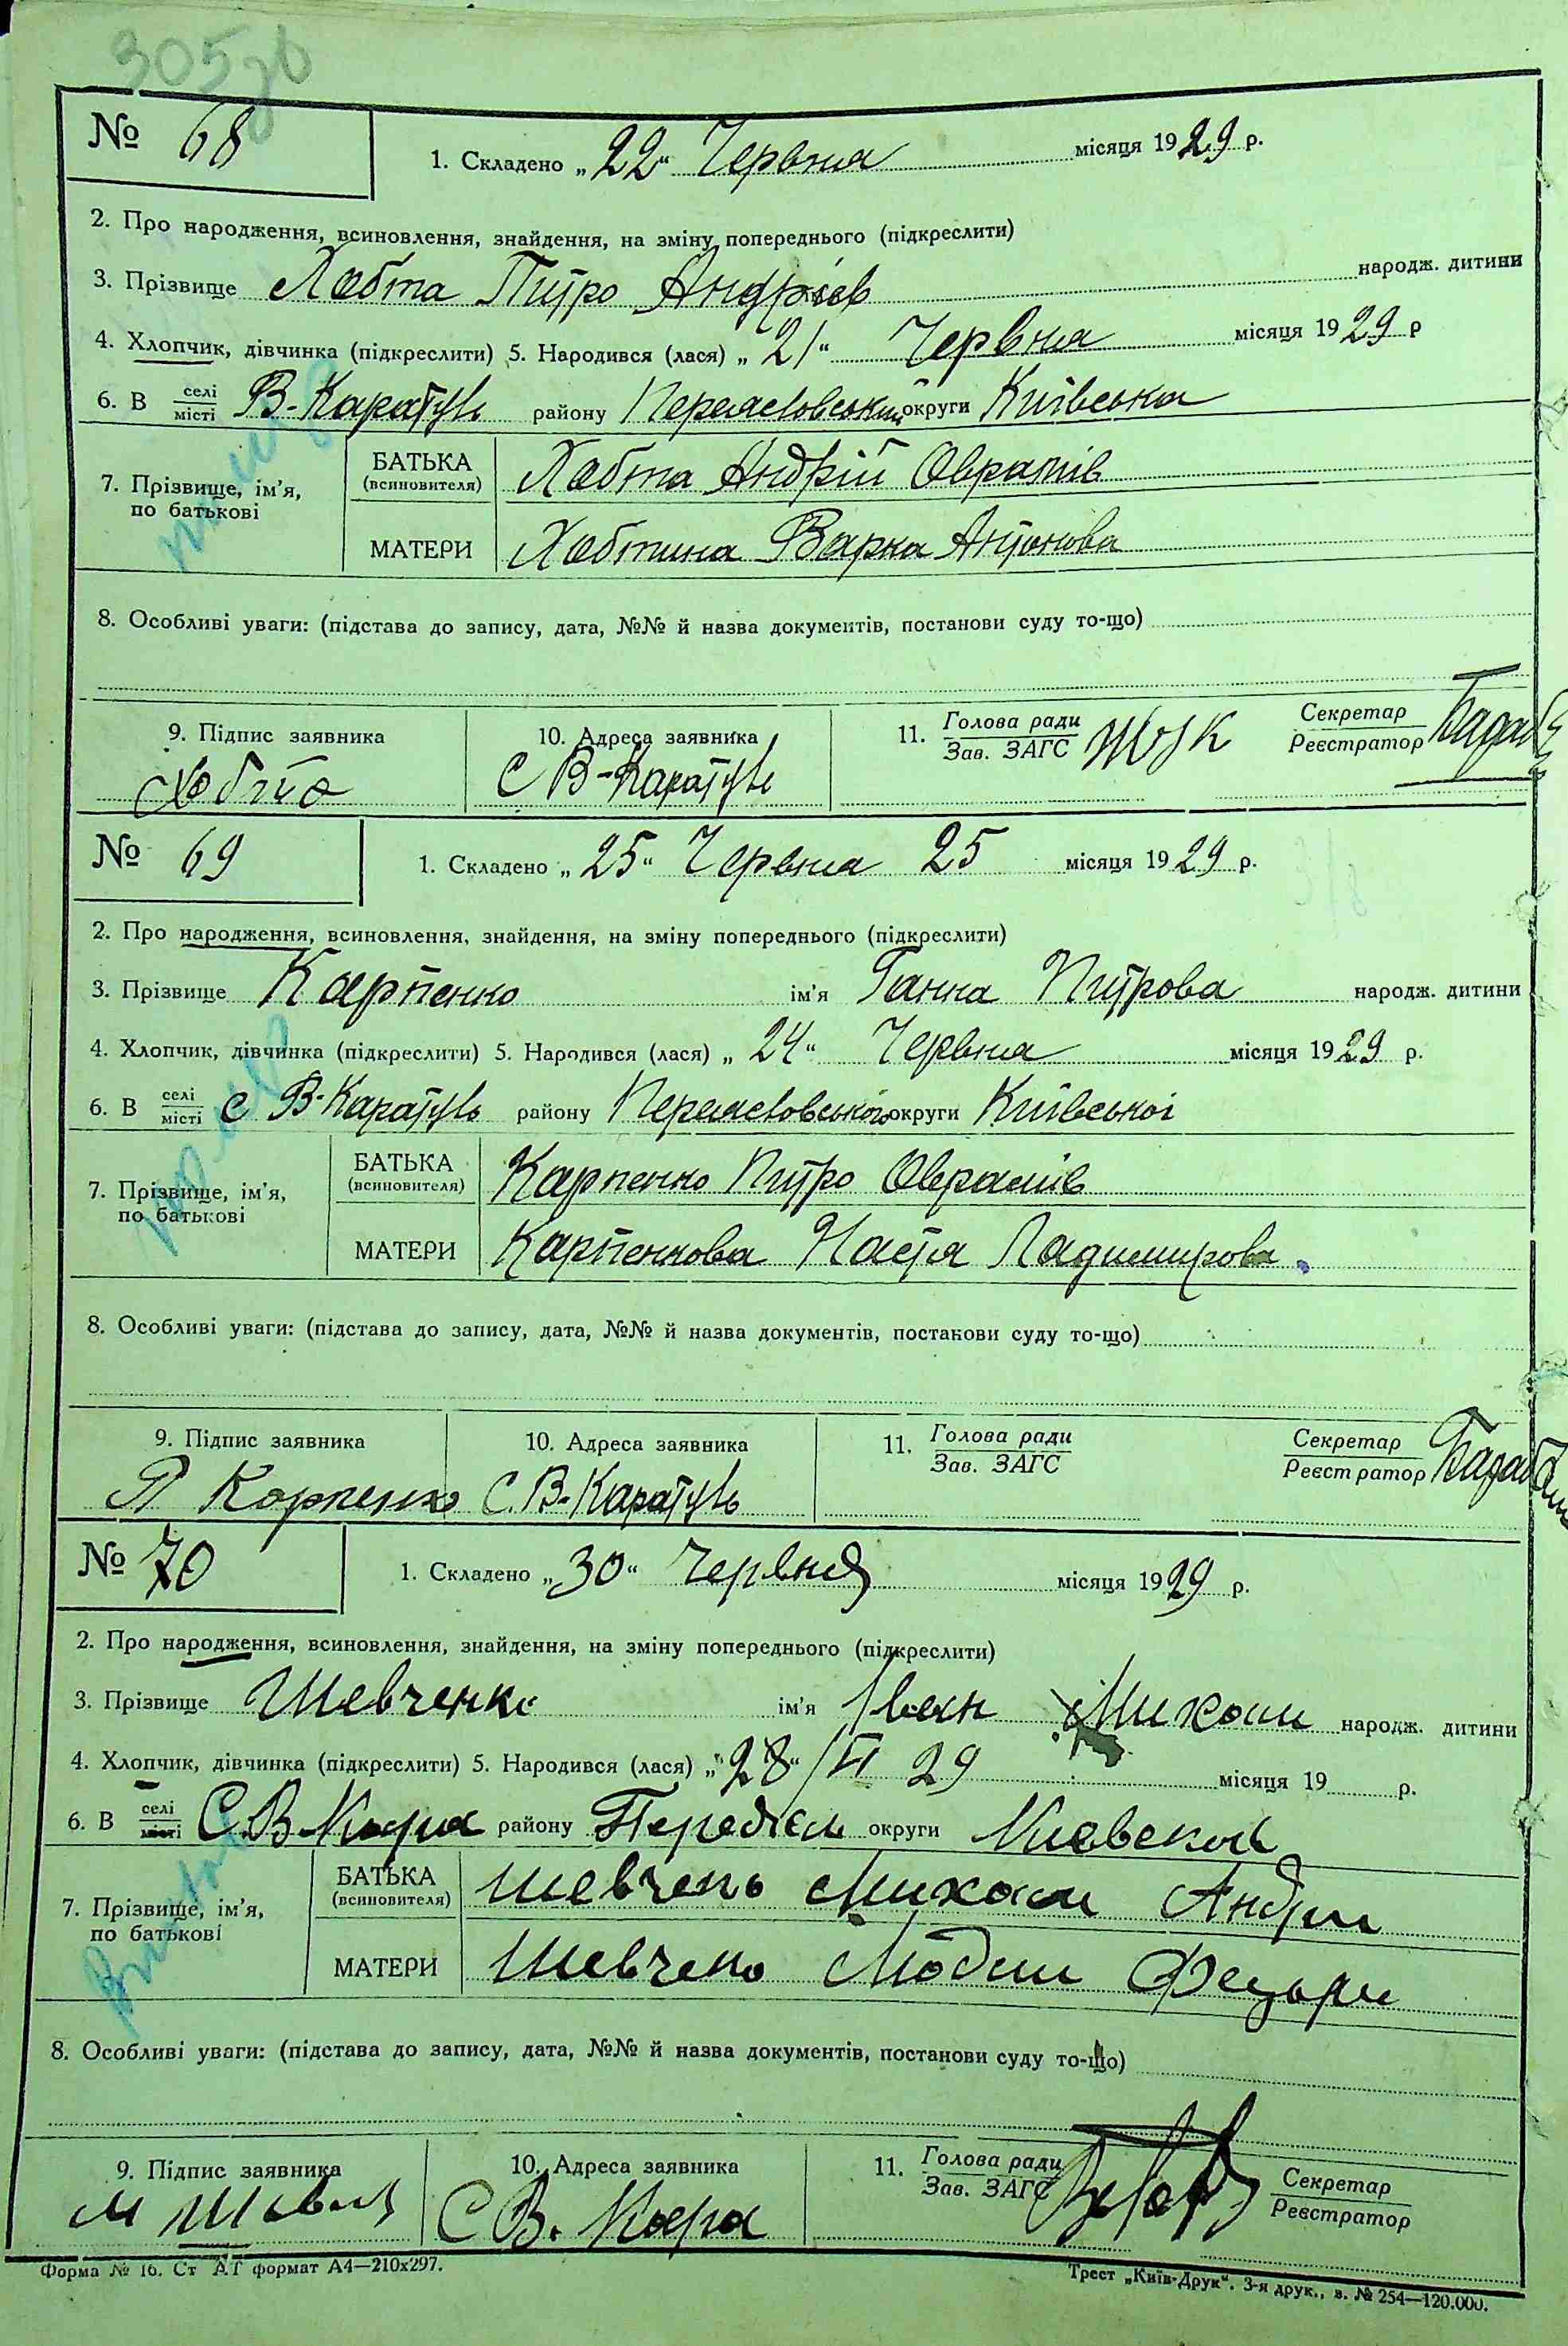 305зв
№ 68
1. Складено „22“ Червня місяця 1929 р.
2. Про народження, всиновлення, знайдення, на зміну попереднього (підкреслити)
3. Прізвище Хабта Питро Андріїв народж. дитини
4. Хлопчик, дівчинка (підкреслити) 5. Народився (лася) „21“ Червня місяця 1929 р
6. В селі місті В-Каратуль району округи Київська
7. Прізвище, ім'я, по батькові
БАТЬКА (всиновителя) Хабта Андрій Оврамів
МАТЕРИ Хабтина Варка Антонова
8. Особливі уваги: (підстава до запису, дата, №№ й назва документів, постанови суду то-що)
9. Підпис заявника
10. Адреса заявника
11. Голова ради Зав. ЗАГС
Секретар Реєстратор
Хабта
С В-Каратуль
№ 69
1. Складено „25“ Червня 25 місяця 1929 р.
2. Про народження, всиновлення, знайдення, на зміну попереднього (підкреслити)
3. Прізвище Карпенко ім'я Ганна Питрова народж. дитини
4. Хлопчик, дівчинка (підкреслити) 5. Народився (лася) „24“ Червня місяця 1929 р.
6. В селі місті с В-Каратуль району округи Київської
7. Прізвище, ім'я, по батькові
БАТЬКА (всиновителя) Карпенко Питро Оврамів
МАТЕРИ Карпенкова Настя Ладимирова
8. Особливі уваги: (підстава до запису, дата, №№ й назва документів, постанови суду то-що)
9. Підпис заявника
10. Адреса заявника
11. Голова ради Зав. ЗАГС
Секретар Реєстратор
П Карпенко
С. В-Каратуль
№ 70
1. Складено „30“ Червня місяця 1929 р.
2. Про народження, всиновлення, знайдення, на зміну попереднього (підкреслити)
3. Прізвище Шевченко ім'я Іван Михаи народж. дитини
4. Хлопчик, дівчинка (підкреслити) 5. Народився (лася) „28“/VI 29 місяця 19 р.
6. В селі місті С. В Кара району округи Киевской
7. Прізвище, ім'я, по батькові
БАТЬКА (всиновителя) Шевчено Михаи Андри
МАТЕРИ Шевчено
8. Особливі уваги: (підстава до запису, дата, №№ й назва документів, постанови суду то-що)
9. Підпис заявника
10. Адреса заявника
11. Голова ради Зав. ЗАГС
Секретар Реєстратор
С В. Кара
Форма № 16. Ст АТ формат А4—210х297.
Трест „Київ-Друк“. 3-я друк., з. № 254—120.000.